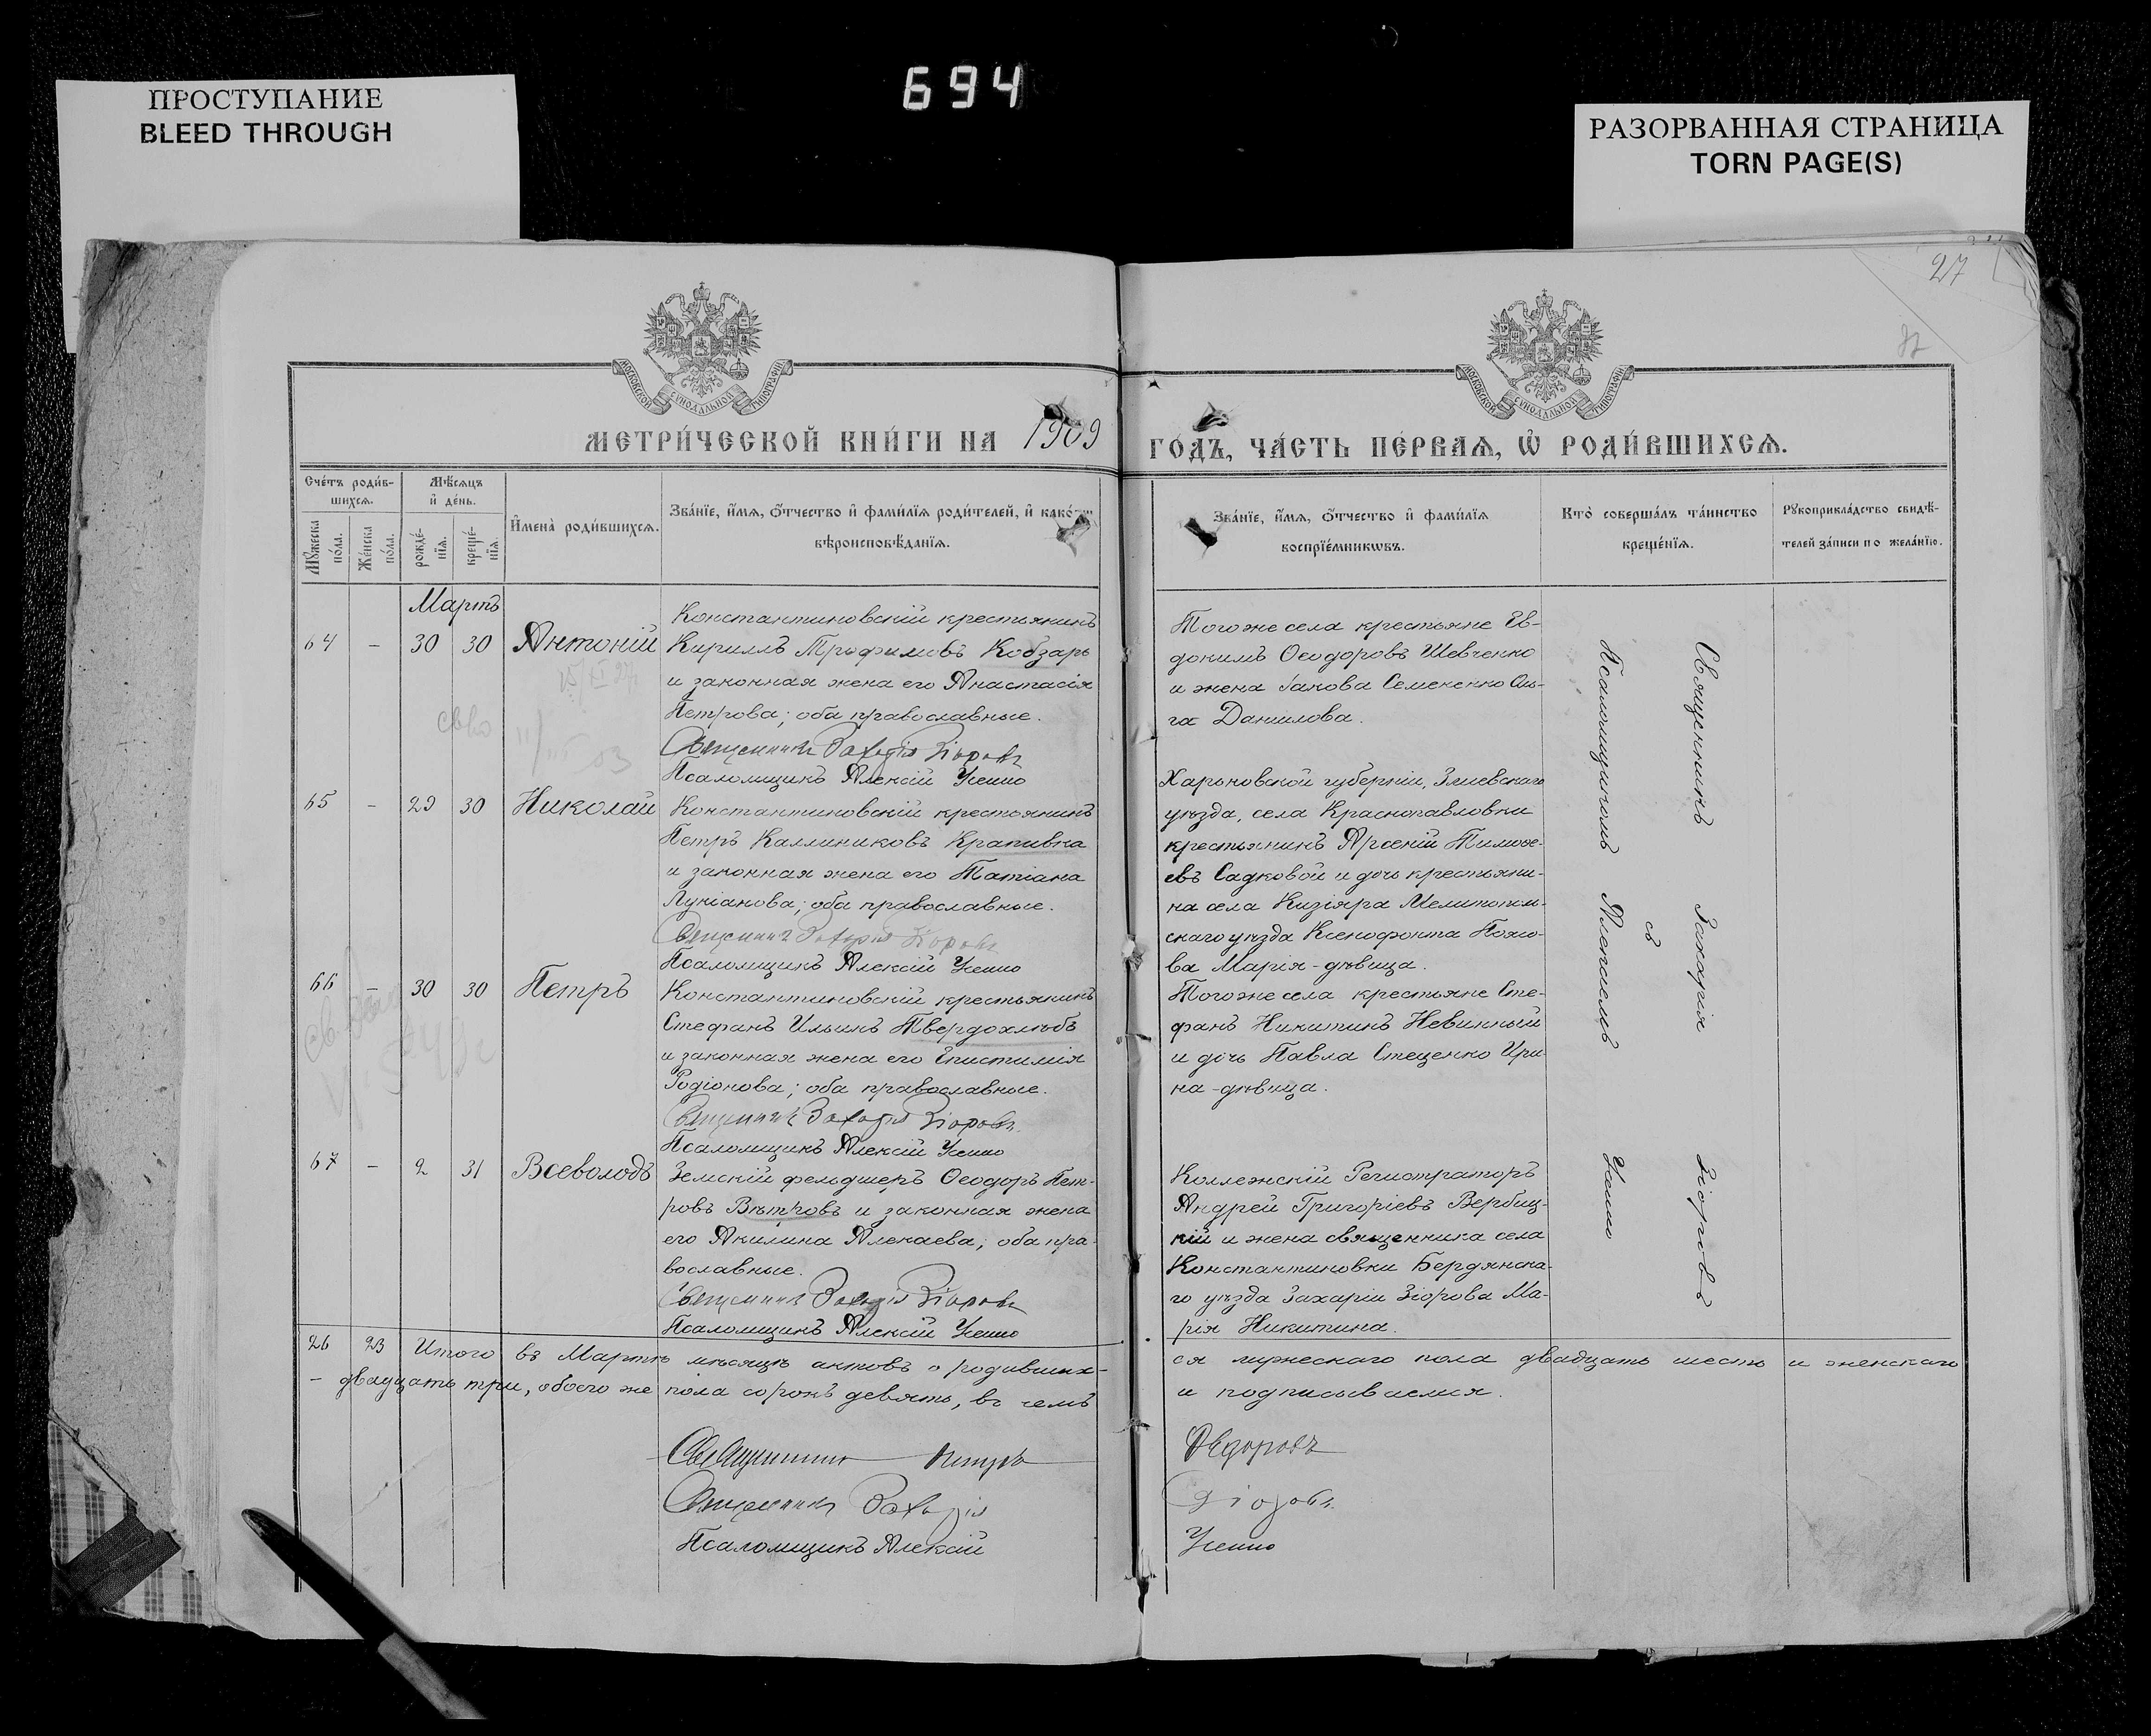 ПРОСТУПАНИЕ
BLEED THROUGH
694
РАЗОРВАННАЯ СТРАНИЦА
TORN PAGE(S)
27
МОСКОВСКОЙ СУНОДАЛЬНОЙ ТИПОГРАФІИ
МОСКОВСКОЙ СУНОДАЛЬНОЙ ТИПОГРАФІИ
МЕТРИ́ЧЕСКОЙ КНИ́ГИ НА 1909
ГО́ДЪ, ЧА́СТЬ ПЕ́РВАѦ, Ѡ҆ РОДИ́ВШИХСѦ.
Сче́тъ роди́в-
шихсѧ.
Мѣ́сѧцъ
и҆ де́нь.
Мꙋ́жеска
по́ла.
Же́нска
по́ла.
рожде́-
нїѧ.
креще́-
нїѧ.
И҆мена̀ роди́вшихсѧ.
Зва́нїе, и҆́мѧ, ѻ҆́тчество и҆ фами́лїѧ роди́телей, и҆ како́гѡ
вѣроисповѣ́данїѧ.
Зва́нїе, и҆́мѧ, ѻ҆́тчество и҆ фами́лїѧ
воспрїе́мникѡвъ.
Кто̀ соверша́лъ та́инство
креще́нїѧ.
Рꙋкоприкла́дство свидѣ́-
телей за́писи по жела́нїю.
Мартъ
64 – 30 30 Антоній
Константиновскій крестьянинъ
Кириллъ Трофимовъ Кобзарь
и законная жена его Анастасія
Петрова; оба православные.
Священникъ Захарія Зіоровъ
Псаломщикъ Алексій Усенко
Того же села крестьяне Ев-
докимъ Ѳеодоровъ Шевченко
и жена Іакова Семененко Оль-
га Данилова.
65 – 29 30 Николай
Константиновскій крестьянинъ
Петръ Каллиниковъ Крапивка
и законная жена его Татіана
Лукіанова; оба православные.
Священникъ Захарія Зіоровъ
Псаломщикъ Алексій Усенко
Харьковской губерніи, Зміевскаго
уѣзда, села Краснопавловки
крестьянинъ Арсеній Тимоѳе-
евъ Садковой и дочь крестьяни-
на села Кизіяра Мелитополь-
скаго уѣзда Ксенофонта
ва Марія - дѣвица.
66 – 30 30 Петръ
Константиновскій крестьянинъ
Стефанъ Ильинъ Твердохлѣбъ
и законная жена его Епистимія
Родіонова; оба православные.
Священникъ Захарія Зіоровъ
Псаломщикъ Алексій Усенко
Того же села крестьяне Сте-
фанъ Никитинъ Невинный
и дочь Павла Стеценко Ири-
на - дѣвица.
67 – 2 31 Всеволодъ
Земскій фельдшеръ Ѳеодоръ Пет-
ровъ Вѣтровъ и законная жена
его Акилина Алексаева; оба пра-
вославные.
Священникъ Захарія Зіоровъ
Псаломщикъ Алексій Усенко
Коллежскій Регистраторъ
Андрей Григоріевъ Вербиц-
кій и жена священника села
Константиновки Бердянска-
го уѣзда Захаріи Зіорова Ма-
рія Никитина.
Священникъ Захарія Зіоровъ
съ
Псаломщикомъ Алексіемъ Усенко
26 23 Итого въ Мартѣ мѣсяцѣ актовъ о родивших-
ся мужескаго пола двадцать шесть и женскаго
– двадцать три, обоего же пола сорокъ девять, въ чемъ
и подписываемся.
Священникъ Петръ Ѳедоровъ
Священникъ Захарія Зіоровъ
Псаломщикъ Алексій Усенко